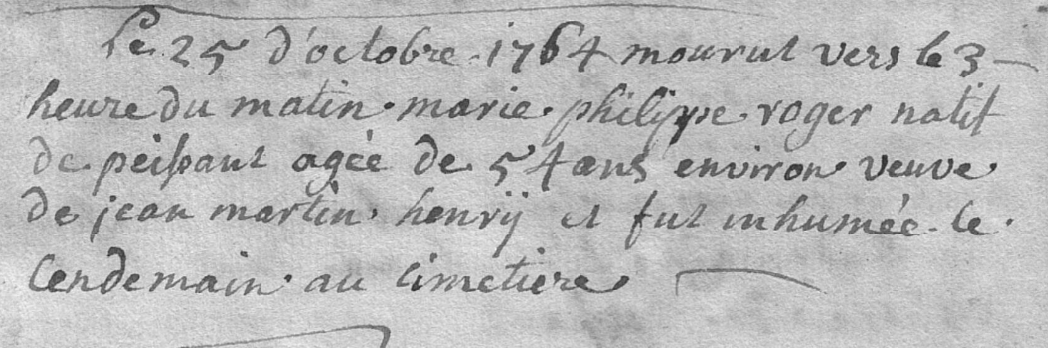 Le 25 d'octobre 1764 mourut vers le 3
heure du matin marie philippe roger natif
de peissant agée de 54 ans environ veuve
de jean martin henrÿ et fut inhumée le
lendemain au cimetiere